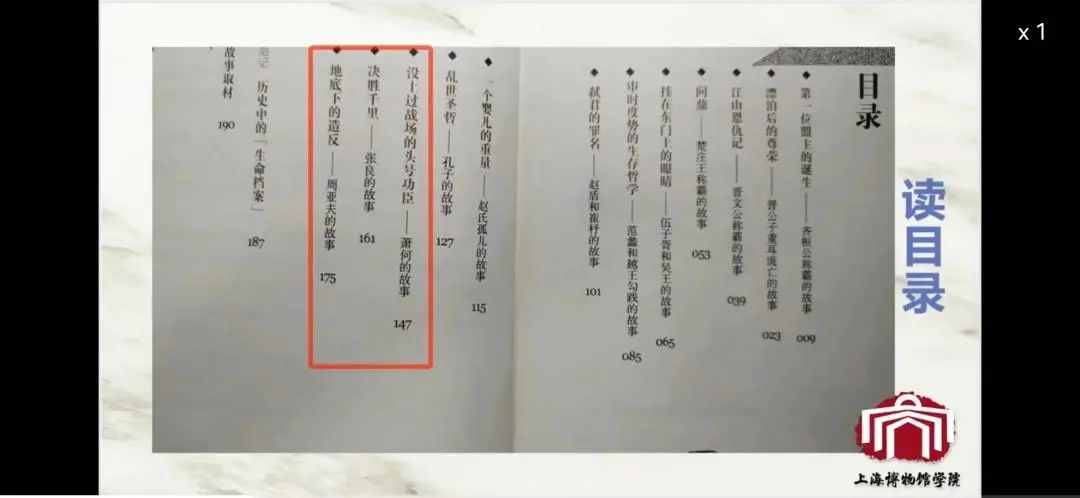 x 1
目录
第一位盟主的诞生——齐桓公称霸的故事 009
漂泊后的尊荣——晋公子重耳流亡的故事 023
江山恩仇记——晋文公称霸的故事 039
问鼎——楚庄王称霸的故事 053
挂在东门上的眼睛——伍子胥和吴王的故事 065
审时度势的生存哲学——范蠡和越王勾践的故事 085
弑君的罪名——赵盾和崔杼的故事 101
一个婴儿的重量——赵氏孤儿的故事 115
乱世圣哲——孔子的故事 127
没上过战场的头号功臣——萧何的故事 147
决胜千里——张良的故事 161
地底下的造反——周亚夫的故事 175
历史中的「生命档案」 187
故事取材 190
读目录
上海博物馆学院